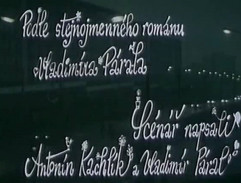 Podle stejnojmenného románu
Vladimíra Párala
Scénář napsali
Antonín Kachlík a Vladimír Páral